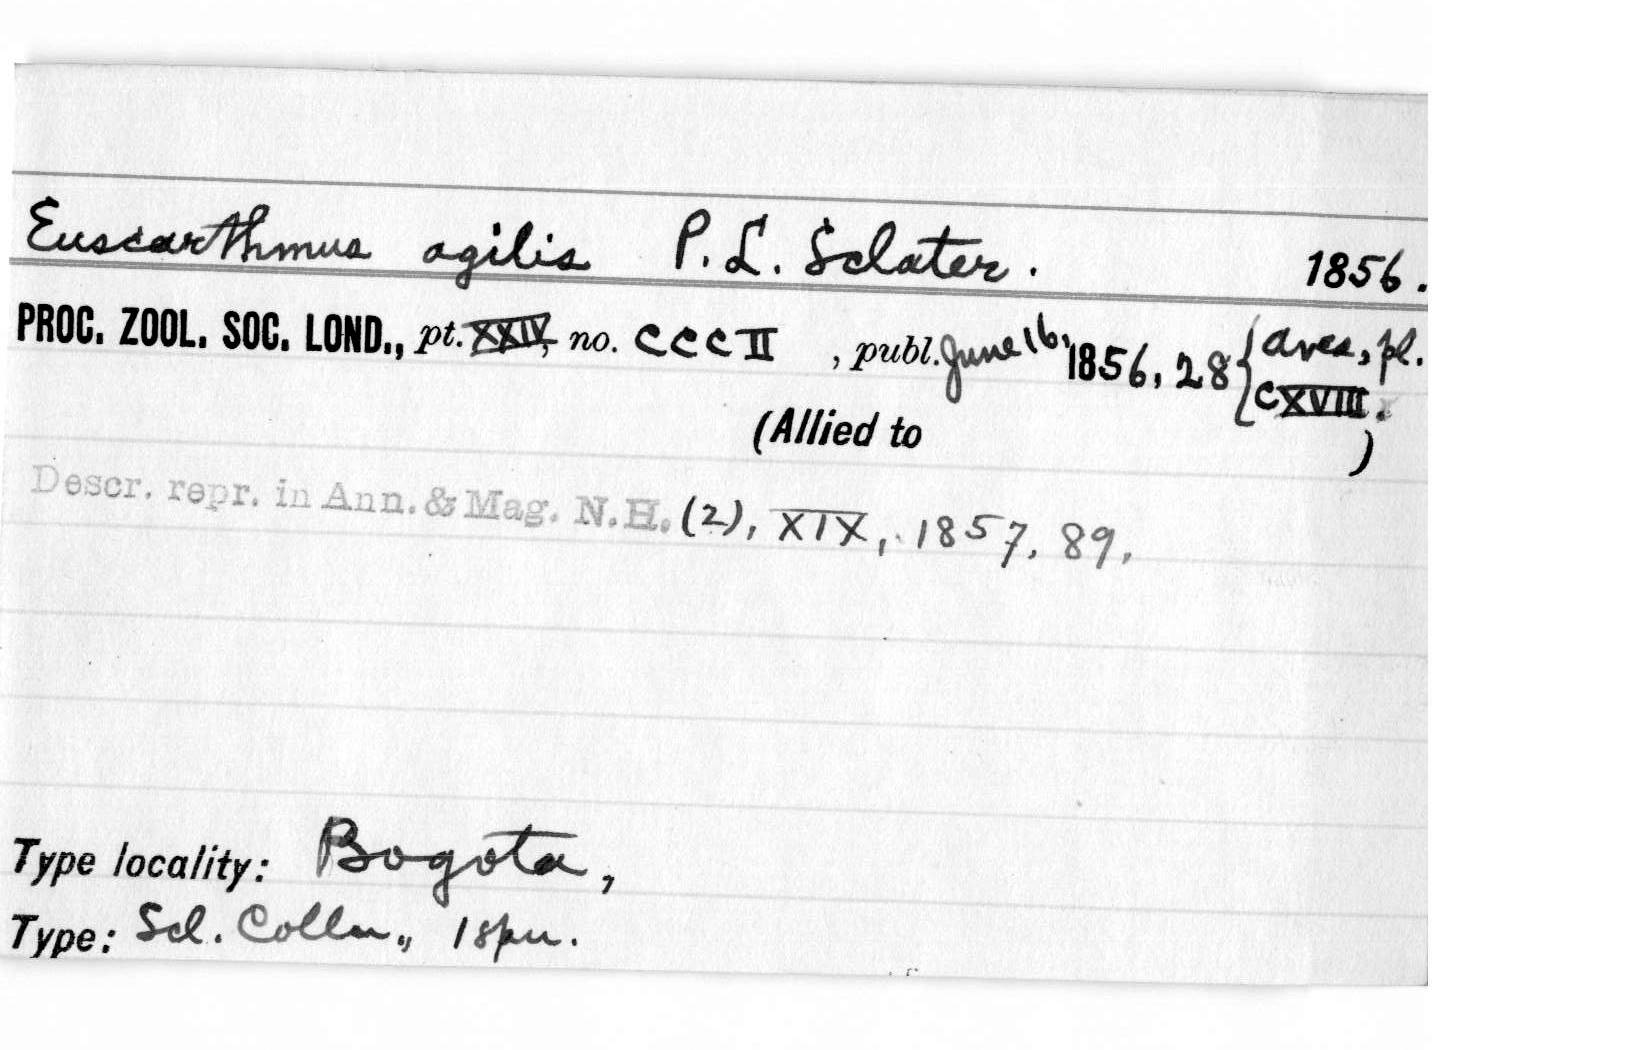 Euscarthmus agilis P. L. Sclater. 1856.
PROC. ZOOL. SOC. LOND., pt. XXIV, no. CCCII , publ. June 16, 1856, 28 { Aves, pl. CXVIII.
(Allied to )
Descr. repr. in Ann. & Mag. N.H. (2), XIX, 1857, 89,
Type locality: Bogota,
Type: Scl. Colln., 1 spn.